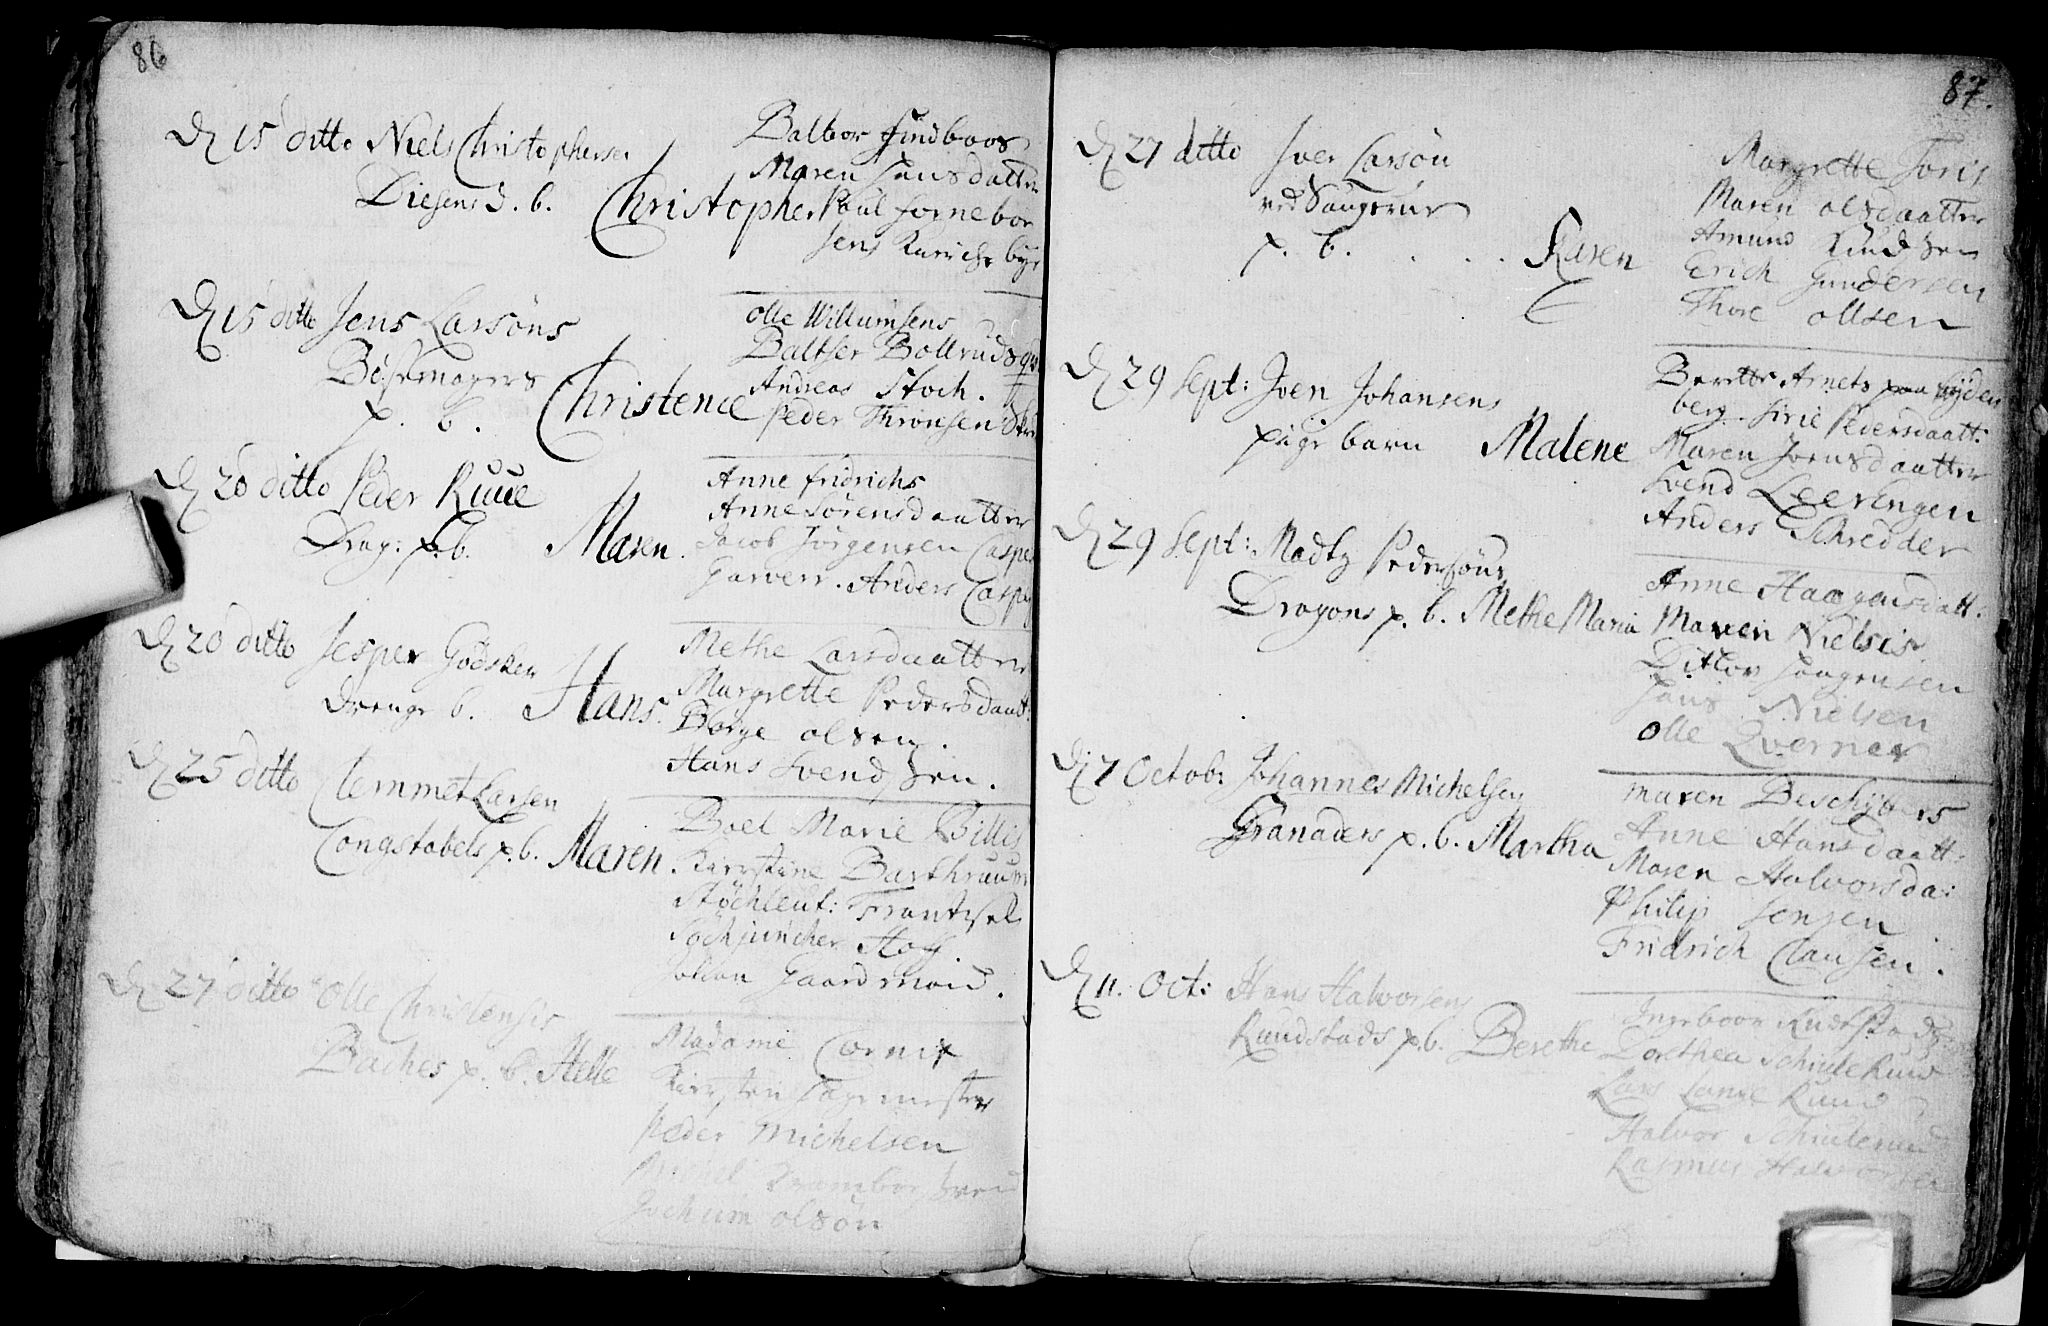 86
D 15 ditto Niels Christophersen
Diesens d. b. Christopher
Maren Jensdatter
Poul fornebor
Jens
D 15 ditto Jens Larsöns
Bössemagers
p. b. Christence
Olle Willumsens
Baltser Bollruds
Andreas Stoch.
Peder Thronsen
D 20 ditto Peder Ruue
Drag: p.b. Maren.
Anne fridrichs
Anne Sörensdaatter
Jacob Jörgensen Casper
Garverr. Anders Casper
D 20 ditto Jesper Godsken
drenge b. Hans.
Methe Larsdaatter
Margrette Pedersdaatt:
Börge olsen.
Hans Svendsen.
D 25 ditto Clemmet Larsen
Congstabels p. b. Maren.
Boel Marie Billis
Kirstine
Stöchleut: Frantzel
Hoff.
Johan Gaardmand.
D 27 ditto Olle Christensis
Baches p. b. Helle
Madame Cornix
Kirsten
Peder Michelsen
Michel
Jochum olsön
87.
D 27 ditto Iver Larsön
ved Saugerne
p. b. . . . Karen
Margrette Joris
Maren olsdaatter
Amund Knudsen
Erich Gundersen
Thore ollsen
D 29 Sept: Joen Johansens
pige barn Malene
Berette Arnets paa Ryden
berg. Sirie Pedersdaatt:
Maren Joensdaatter
Svend Leerengen
Anders Schredder
D 29 Sept: Madtz Pedersöns
Dragons p. b. Methe Maria
Anne Haagensdaatt:
Maren Nielsis
Ditlov
Jens Nielsen
Olle Qverner
D 7 Octob: Johannes Michelsen
Granaders p. b. Martha
Maren Beschÿtters
Anne Hansdaatt:
Maren Halvorsda:
Philip Jensen
Fridrich Clausen.
D 11. Oct: Hans Halvorsen
Ruudstads p. b. Berethe
Ingeboor Rudstads
Dorethea Schiulerud
Lars Lange Ruud
Halvor Schiulerud
Rasmus Halvorsen